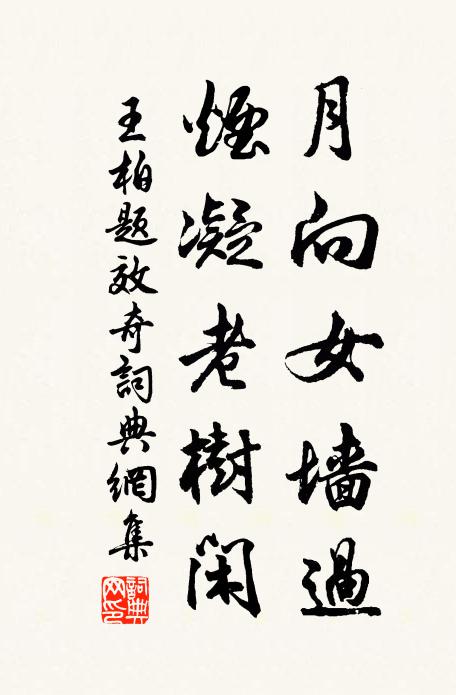 月向女墙過
煙凝老樹閑
王柏題效奇詞典網集
詞典網印